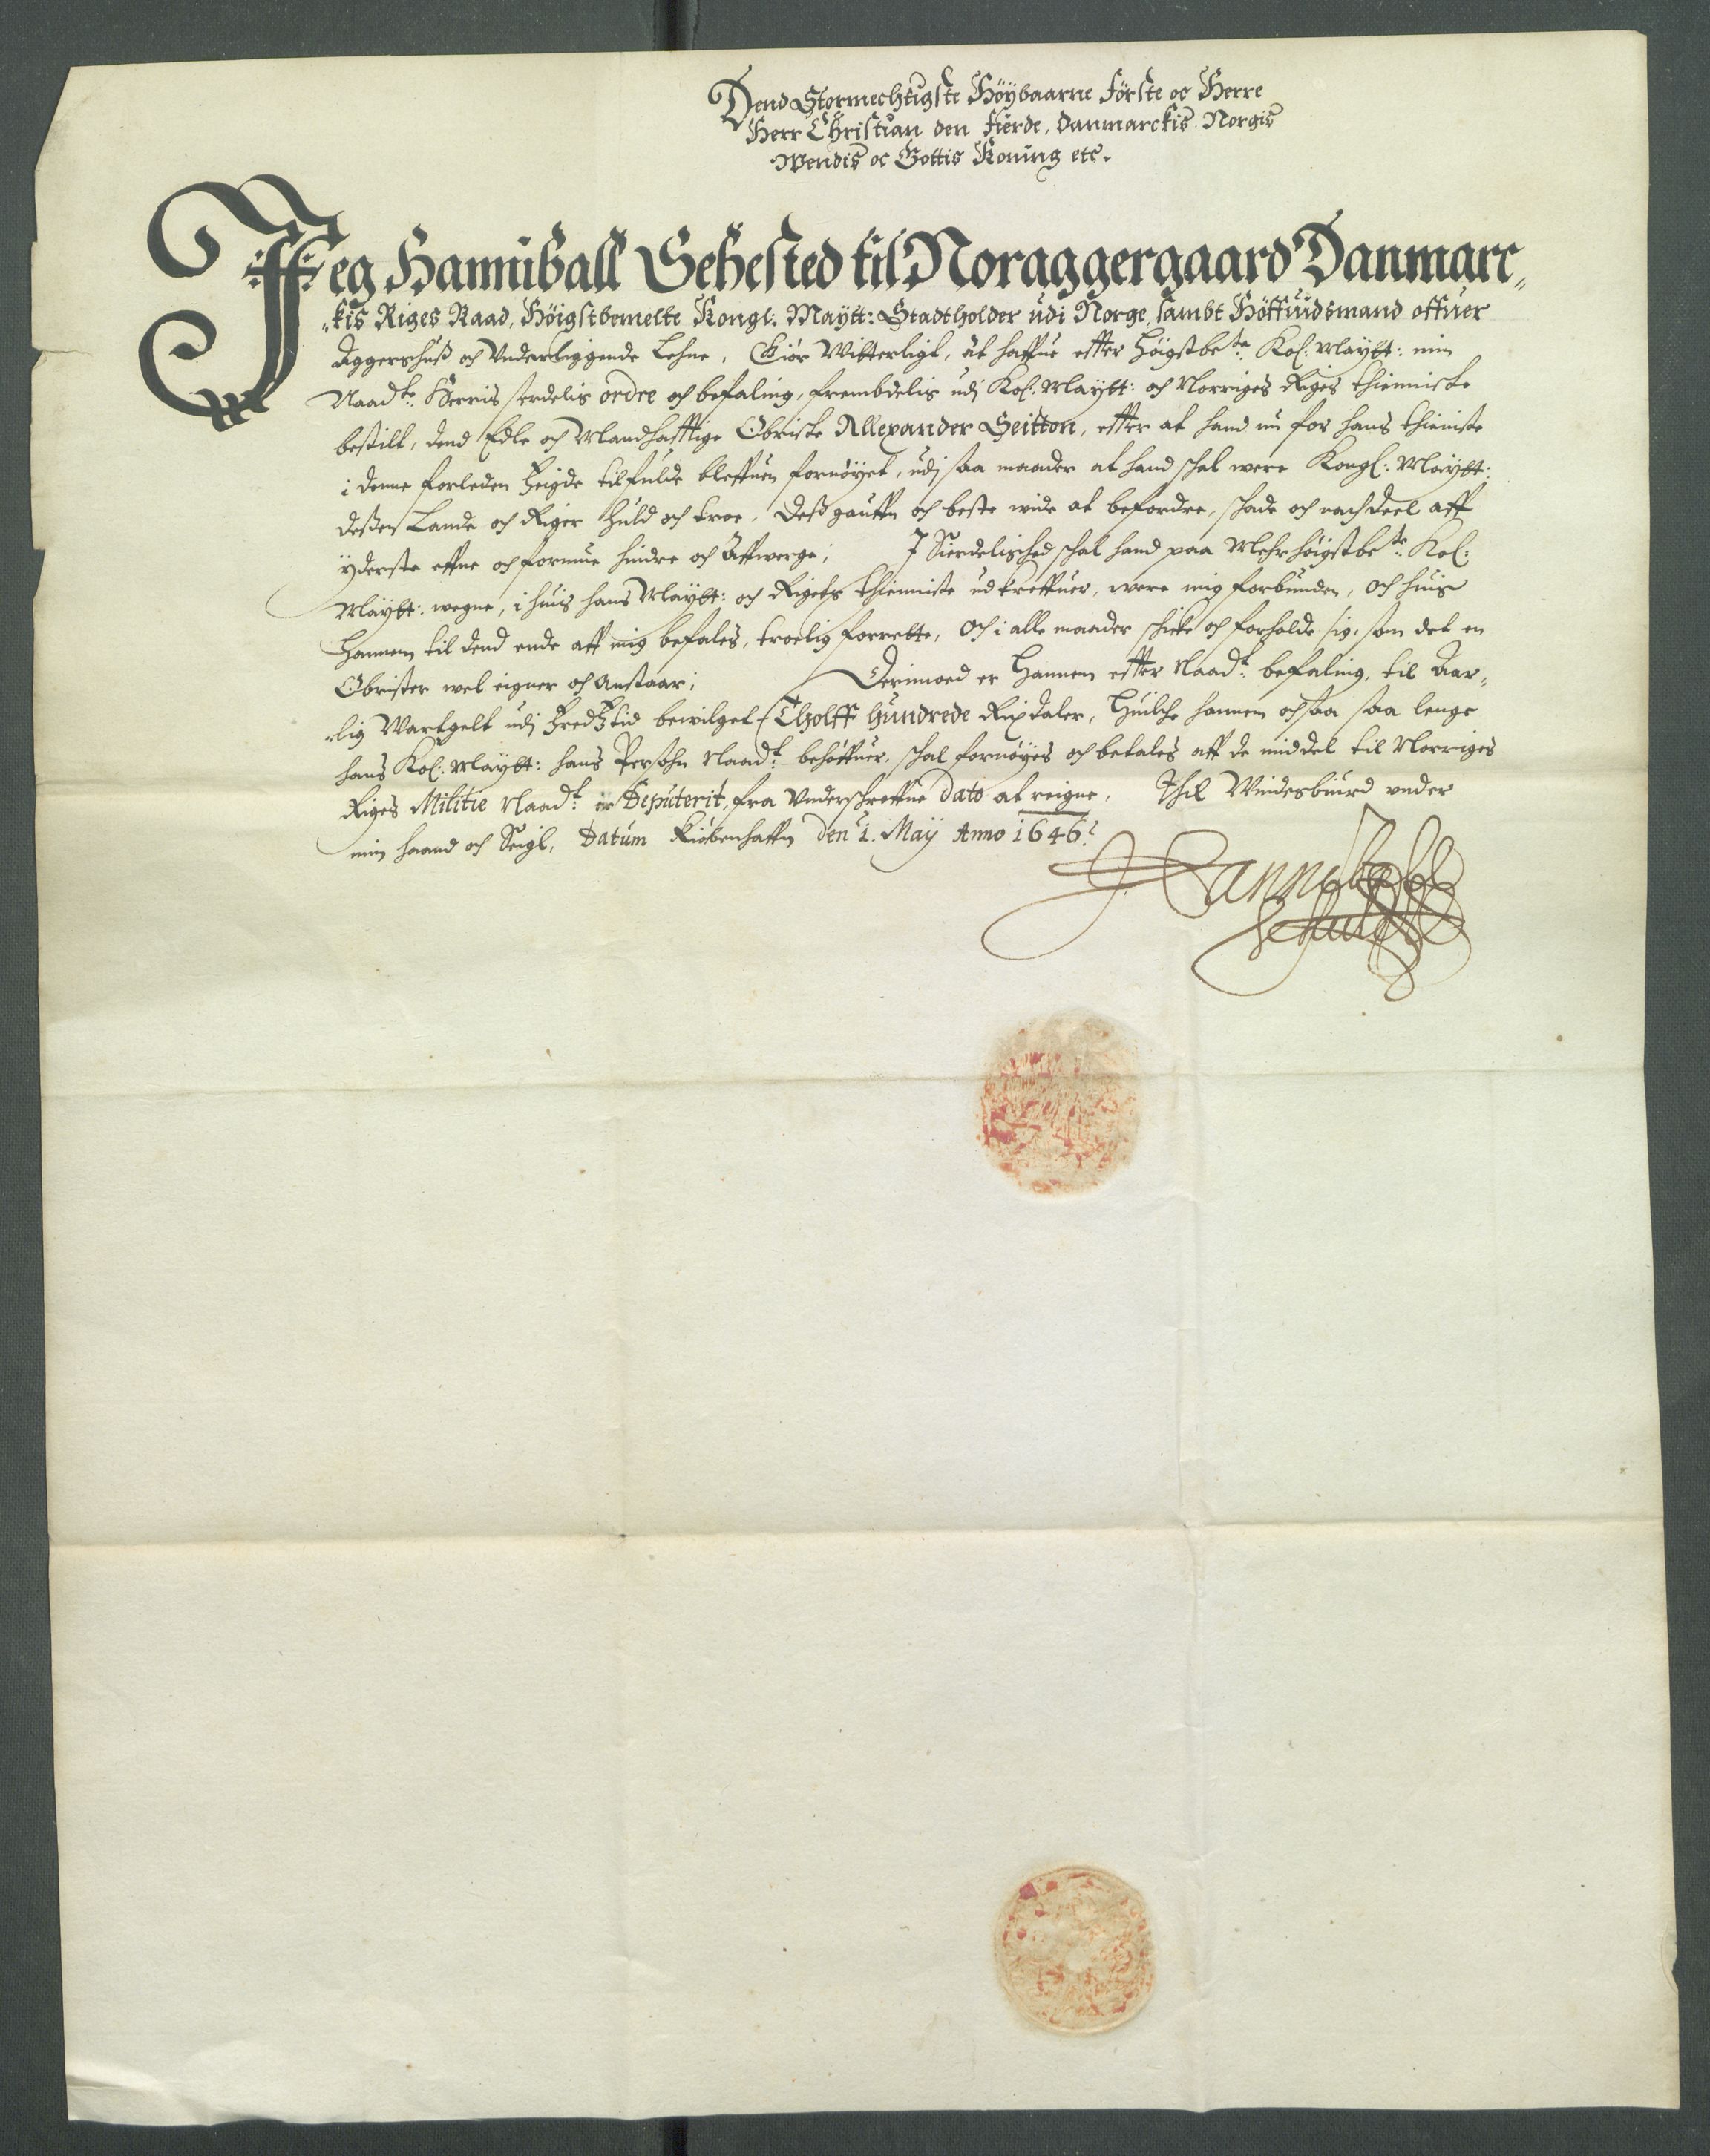 Dend Stormechtigste Höÿbaarne Förste oc Herre
Herr Christian den fierde, Danmarckis Norgis
Wendis oc Gottis Koning etc.
Jeg Hanniball Sehested til Noraggergaard Danmarc„
„kis Riges Raad, Höigstbemelte Kongl: Maÿtt: Stadtholder udi Norge, sambt Höffuidsmand offuer
Aggershuß och Vnderliggende Lehne, Giör Witterligt, at haffue effter Höigstbe.te Kol: Maÿtt: min
Naad.te Herris serdelis ordre och befaling, frembdelis udj Kol: Maÿtt: och Norriges Riges thienniste
bestilt, dend Edle och Mandhafftige Obriste Allexander Seitton, effter at hand nu for hans thieniste
i denne forleden Feigde tilfulde bleffuen fornöÿet, udj saa maader at hand schal were Kongl: Maÿtt:
deßen Lande och Riger huld och troe, Deß gauffn och beste wide at befordre, schade och nachdeel aff
ÿderste effne och formue hindre och affwerge; J Sierdelished schal hand paa Mehrhöigstbe.te Kol:
Maÿtt: wegne, i huis hans Maÿtt: och Rigets thienniste udkreffuer, were mig forbunden, och huis
hannem til dend ende aff mig befales, troelig forrette, och i alle maader schicke och forholde sig, som det en
Obrister wel eigner och anstaar; Derimoed er hannem effter Naad.t befaling, til Aar„
„lig Wartgelt udj Fredtztid bewilget Tholff hundrede Rixdaler, Huilche hannem ochsaa saa lenge
hans Kol: Maÿtt: hans Persohn Naad.t behöffuer, schal fornöÿes och betales aff de middel til Norriges
Riges Militie Naad.t er Deputerit, fra Underschreffne dato at reigne, Thil Windesbiurd under
min haand och Seigl, Datum Kiöbenhaffn den 1. Maÿ Anno 1646.
Hanniball
Sehested